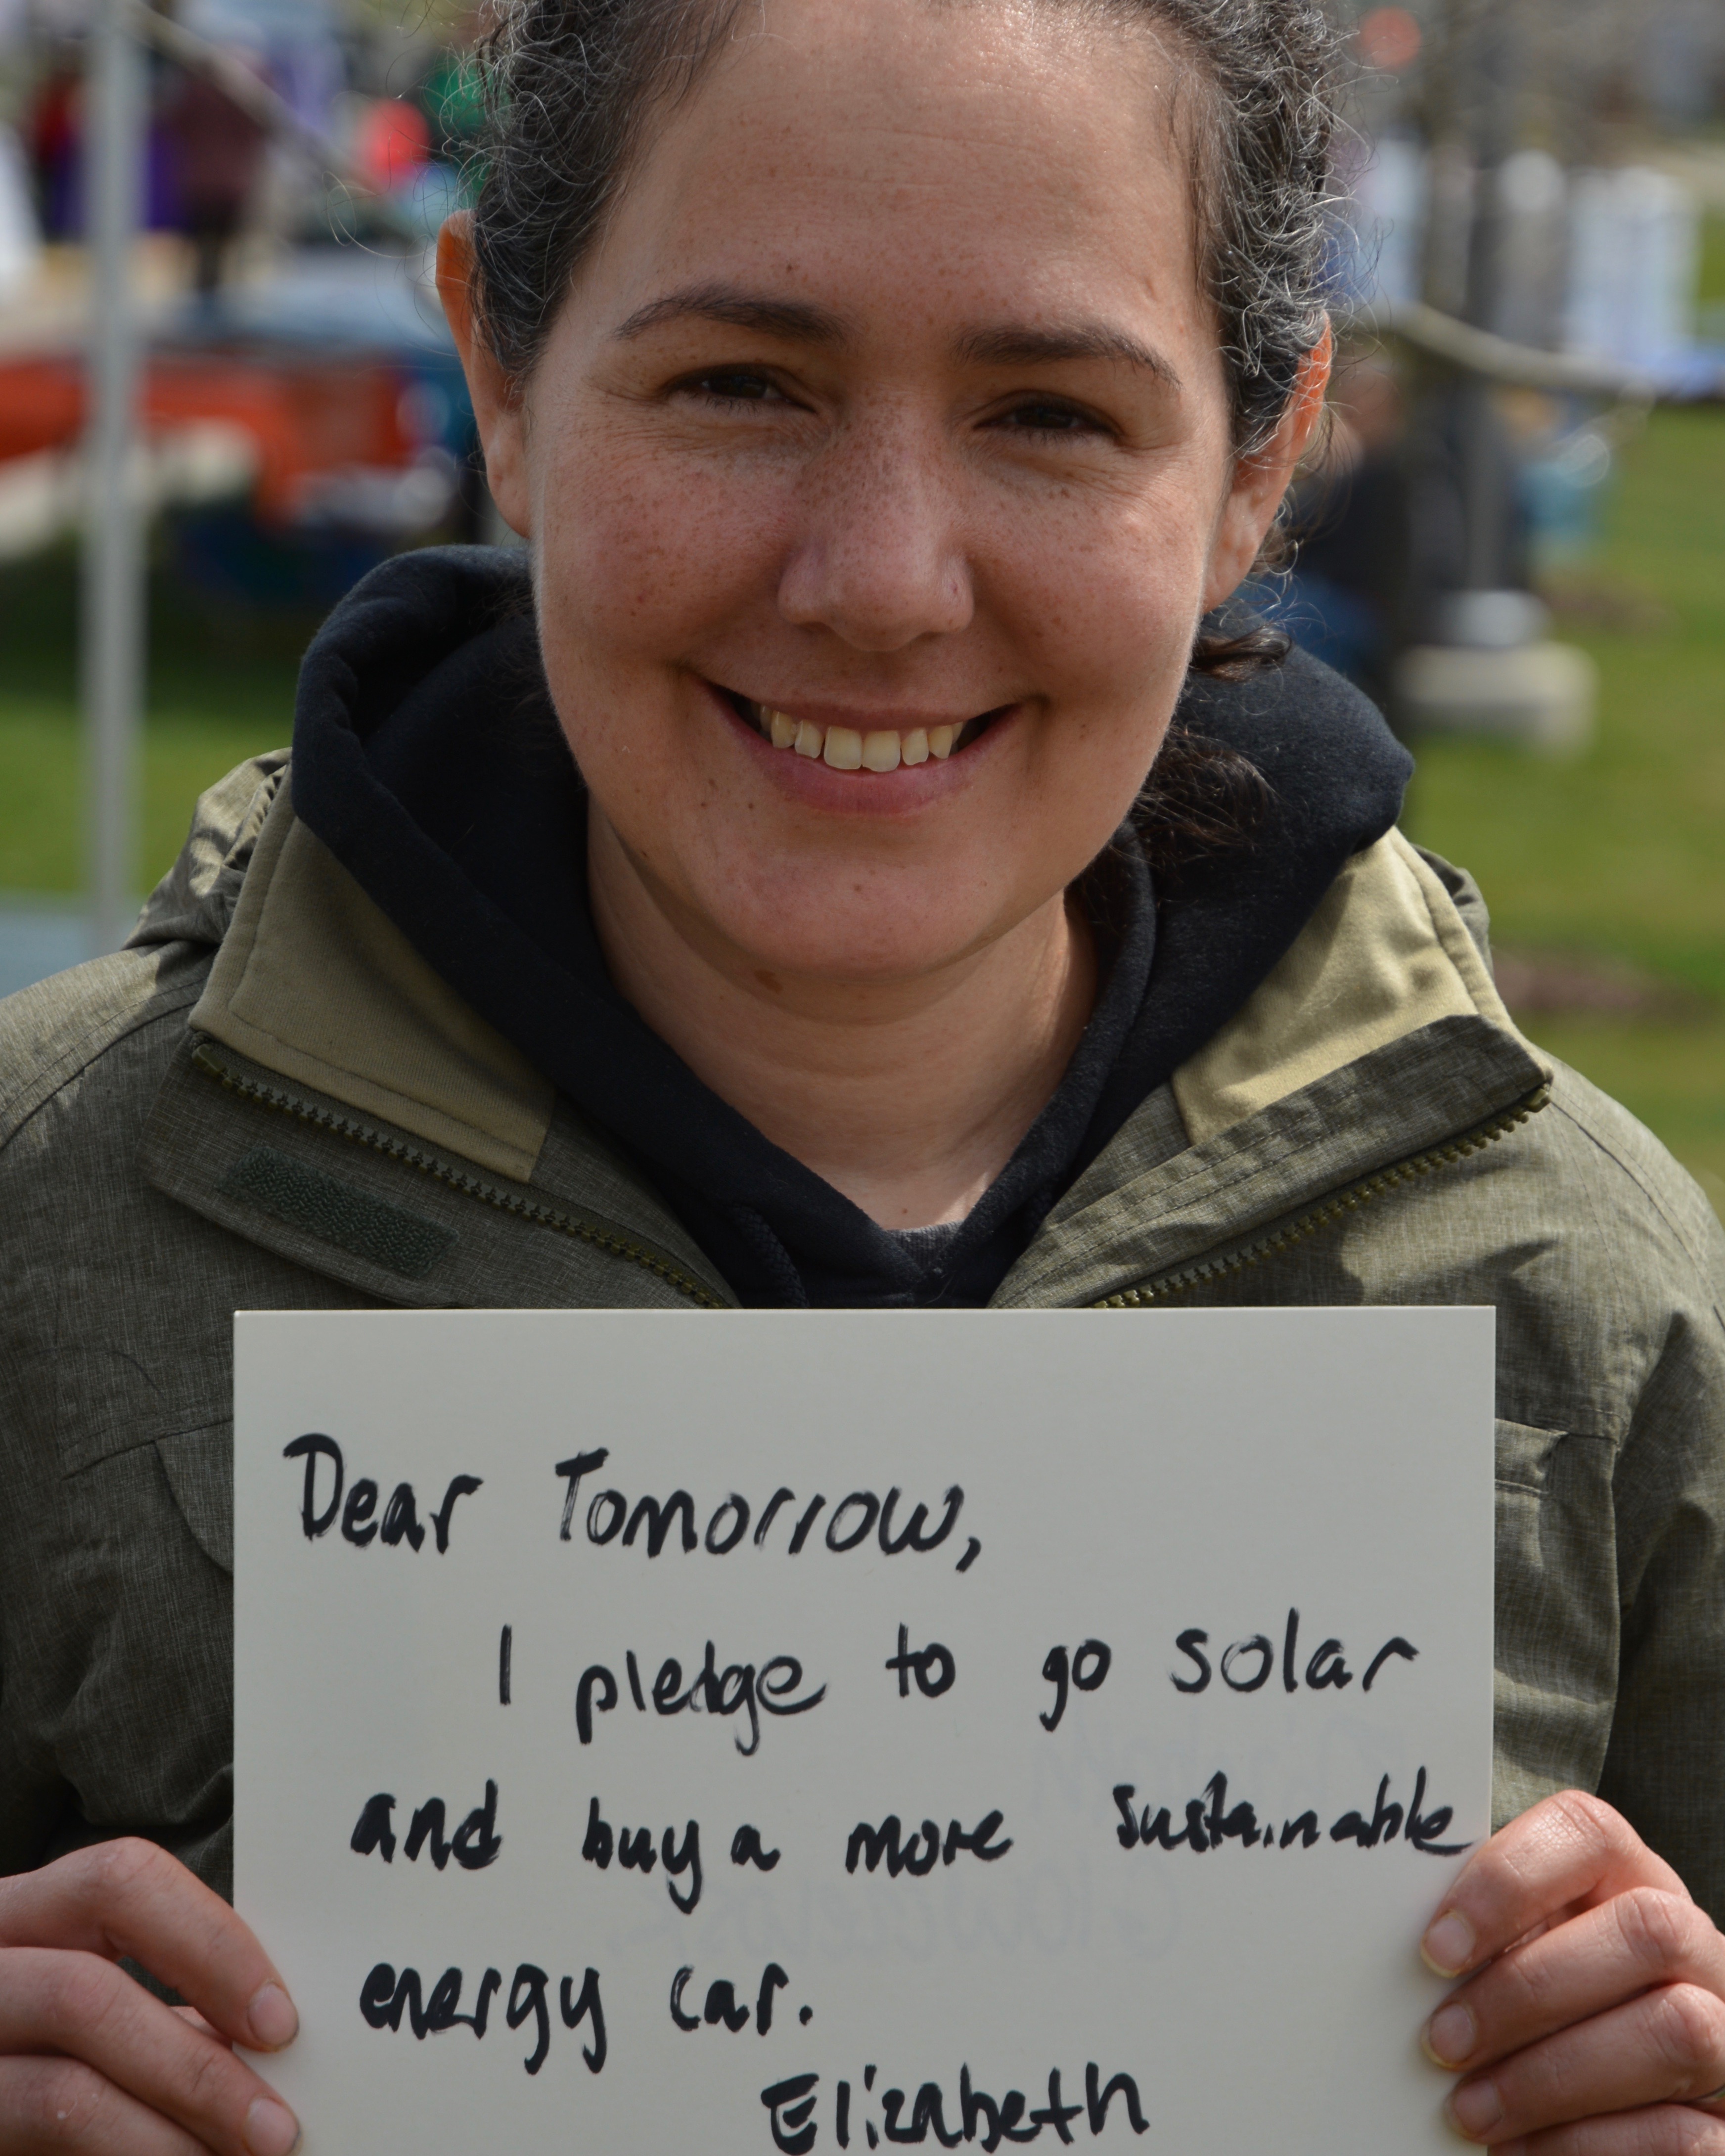 Dear Tomorrow,
I pledge to go solar
and buy a more sustainable
energy car.
Elizabeth